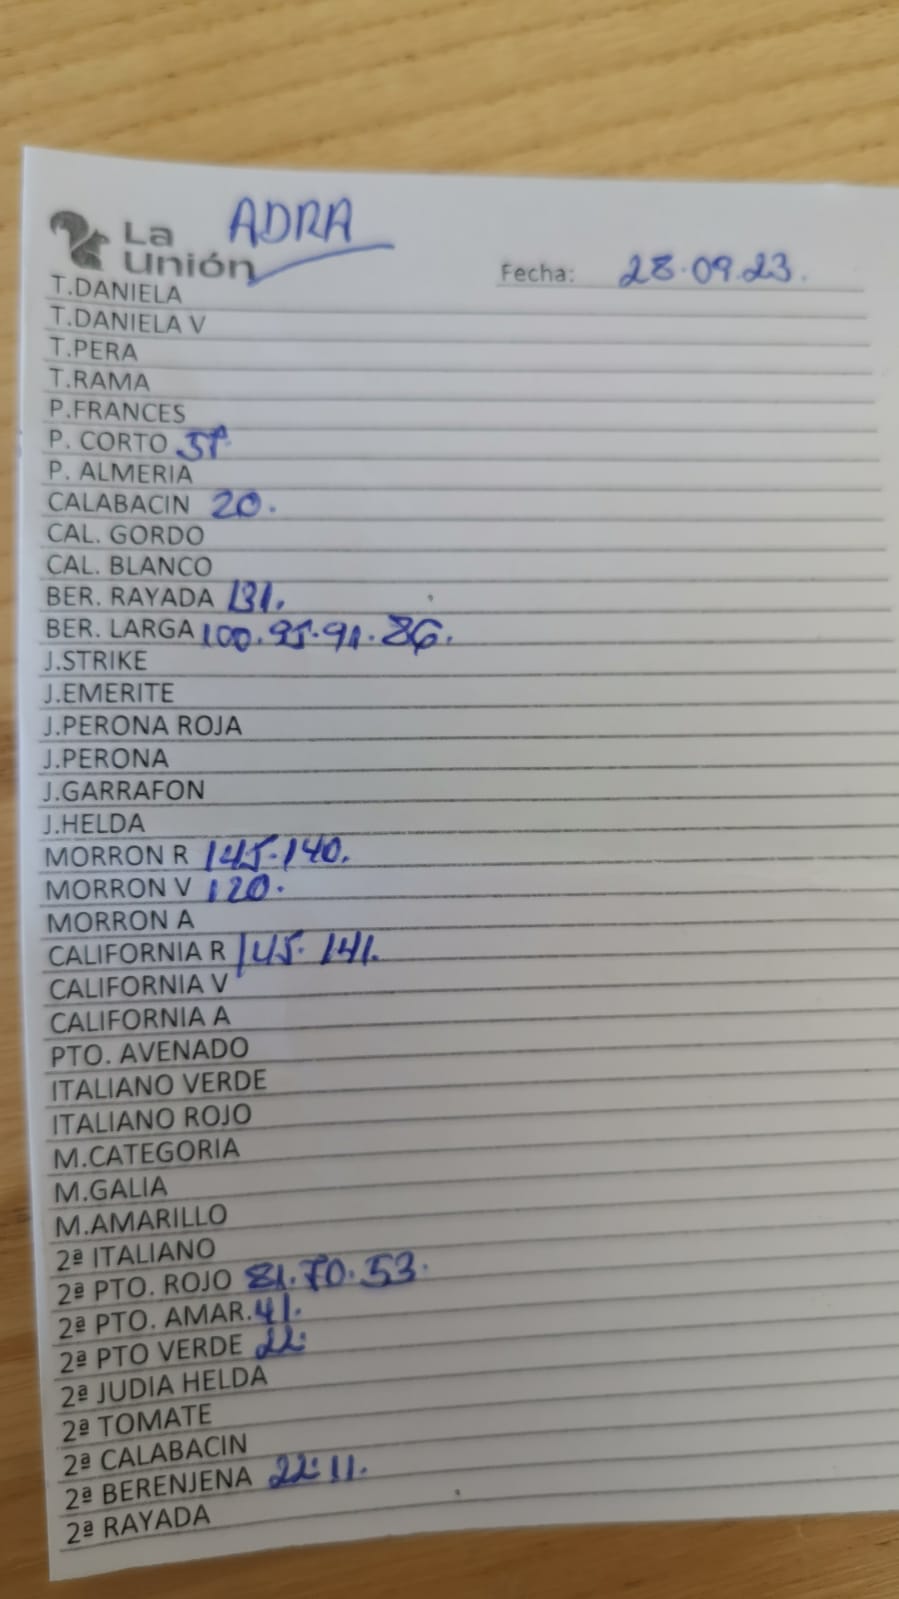 La Unión ADRA
Fecha: 28.09.23.
T.DANIELA
T.DANIELA V
T.PERA
T.RAMA
P.FRANCES
P. CORTO
P. ALMERIA
CALABACIN 20.
CAL. GORDO
CAL. BLANCO
BER. RAYADA 131.
BER. LARGA 100.95.91.86.
J.STRIKE
J.EMERITE
J.PERONA ROJA
J.PERONA
J.GARRAFON
J.HELDA
MORRON R 145.140.
MORRON V 120.
MORRON A
CALIFORNIA R 145. 141.
CALIFORNIA V
CALIFORNIA A
PTO. AVENADO
ITALIANO VERDE
ITALIANO ROJO
M.CATEGORIA
M.GALIA
M.AMARILLO
2ª ITALIANO
2ª PTO. ROJO 81.70.53.
2ª PTO. AMAR. 41.
2ª PTO VERDE 22.
2ª JUDIA HELDA
2ª TOMATE
2ª CALABACIN
2ª BERENJENA 22.11.
2ª RAYADA